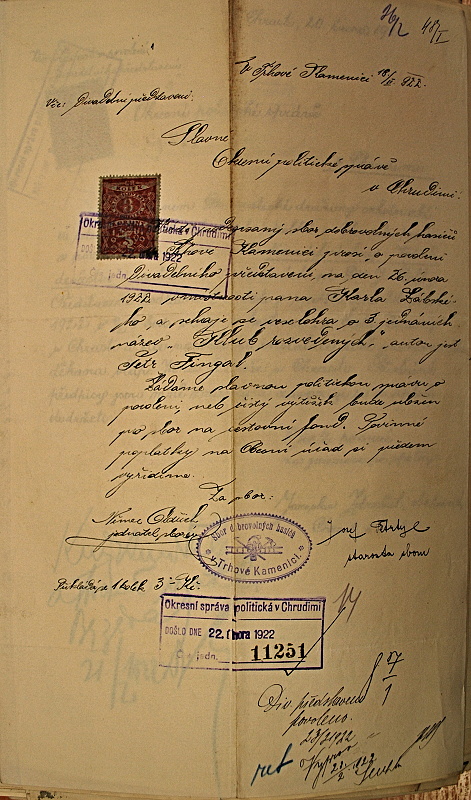 26/2 48/I
V Trhové Kamenici 18/II 1922.
Věc: Divadelní představení.
Slavné
Okresní politické správě
v Chrudimi.
Okresní správa politická v Chrudimi
1922
čís. jedn.
KOLEK
3
Podepsaný sbor dobrovolných hasičů
v Trhové Kamenici prosí o povolení
Divadelního představení, na den 26. února
1922. v místnosti pana Karla
ho, a sehraje se veselohra o 3 jednáních
název „Klub rozvedených", autor jest
Petr Fingal.
Žádáme slavnou politickou správu o
povolení, neb čistý výtěžek bude uložen
pro sbor na cestovní fond. Povinné
poplatky na Obecní úřad si předem
vyřídíme.
Za sbor:
Němec Oldřich
jednatel sboru
Sbor dobrovolných hasičů
v Trhové Kamenici.
Josef
starosta sboru
Přikládá se 1 kolek 3 Kč.
Okresní správa politická v Chrudimi
DOŠLO DNE 22. února 1922
Čís. jedn. 11251
17
Div. představení
povoleno.
22/2 1922